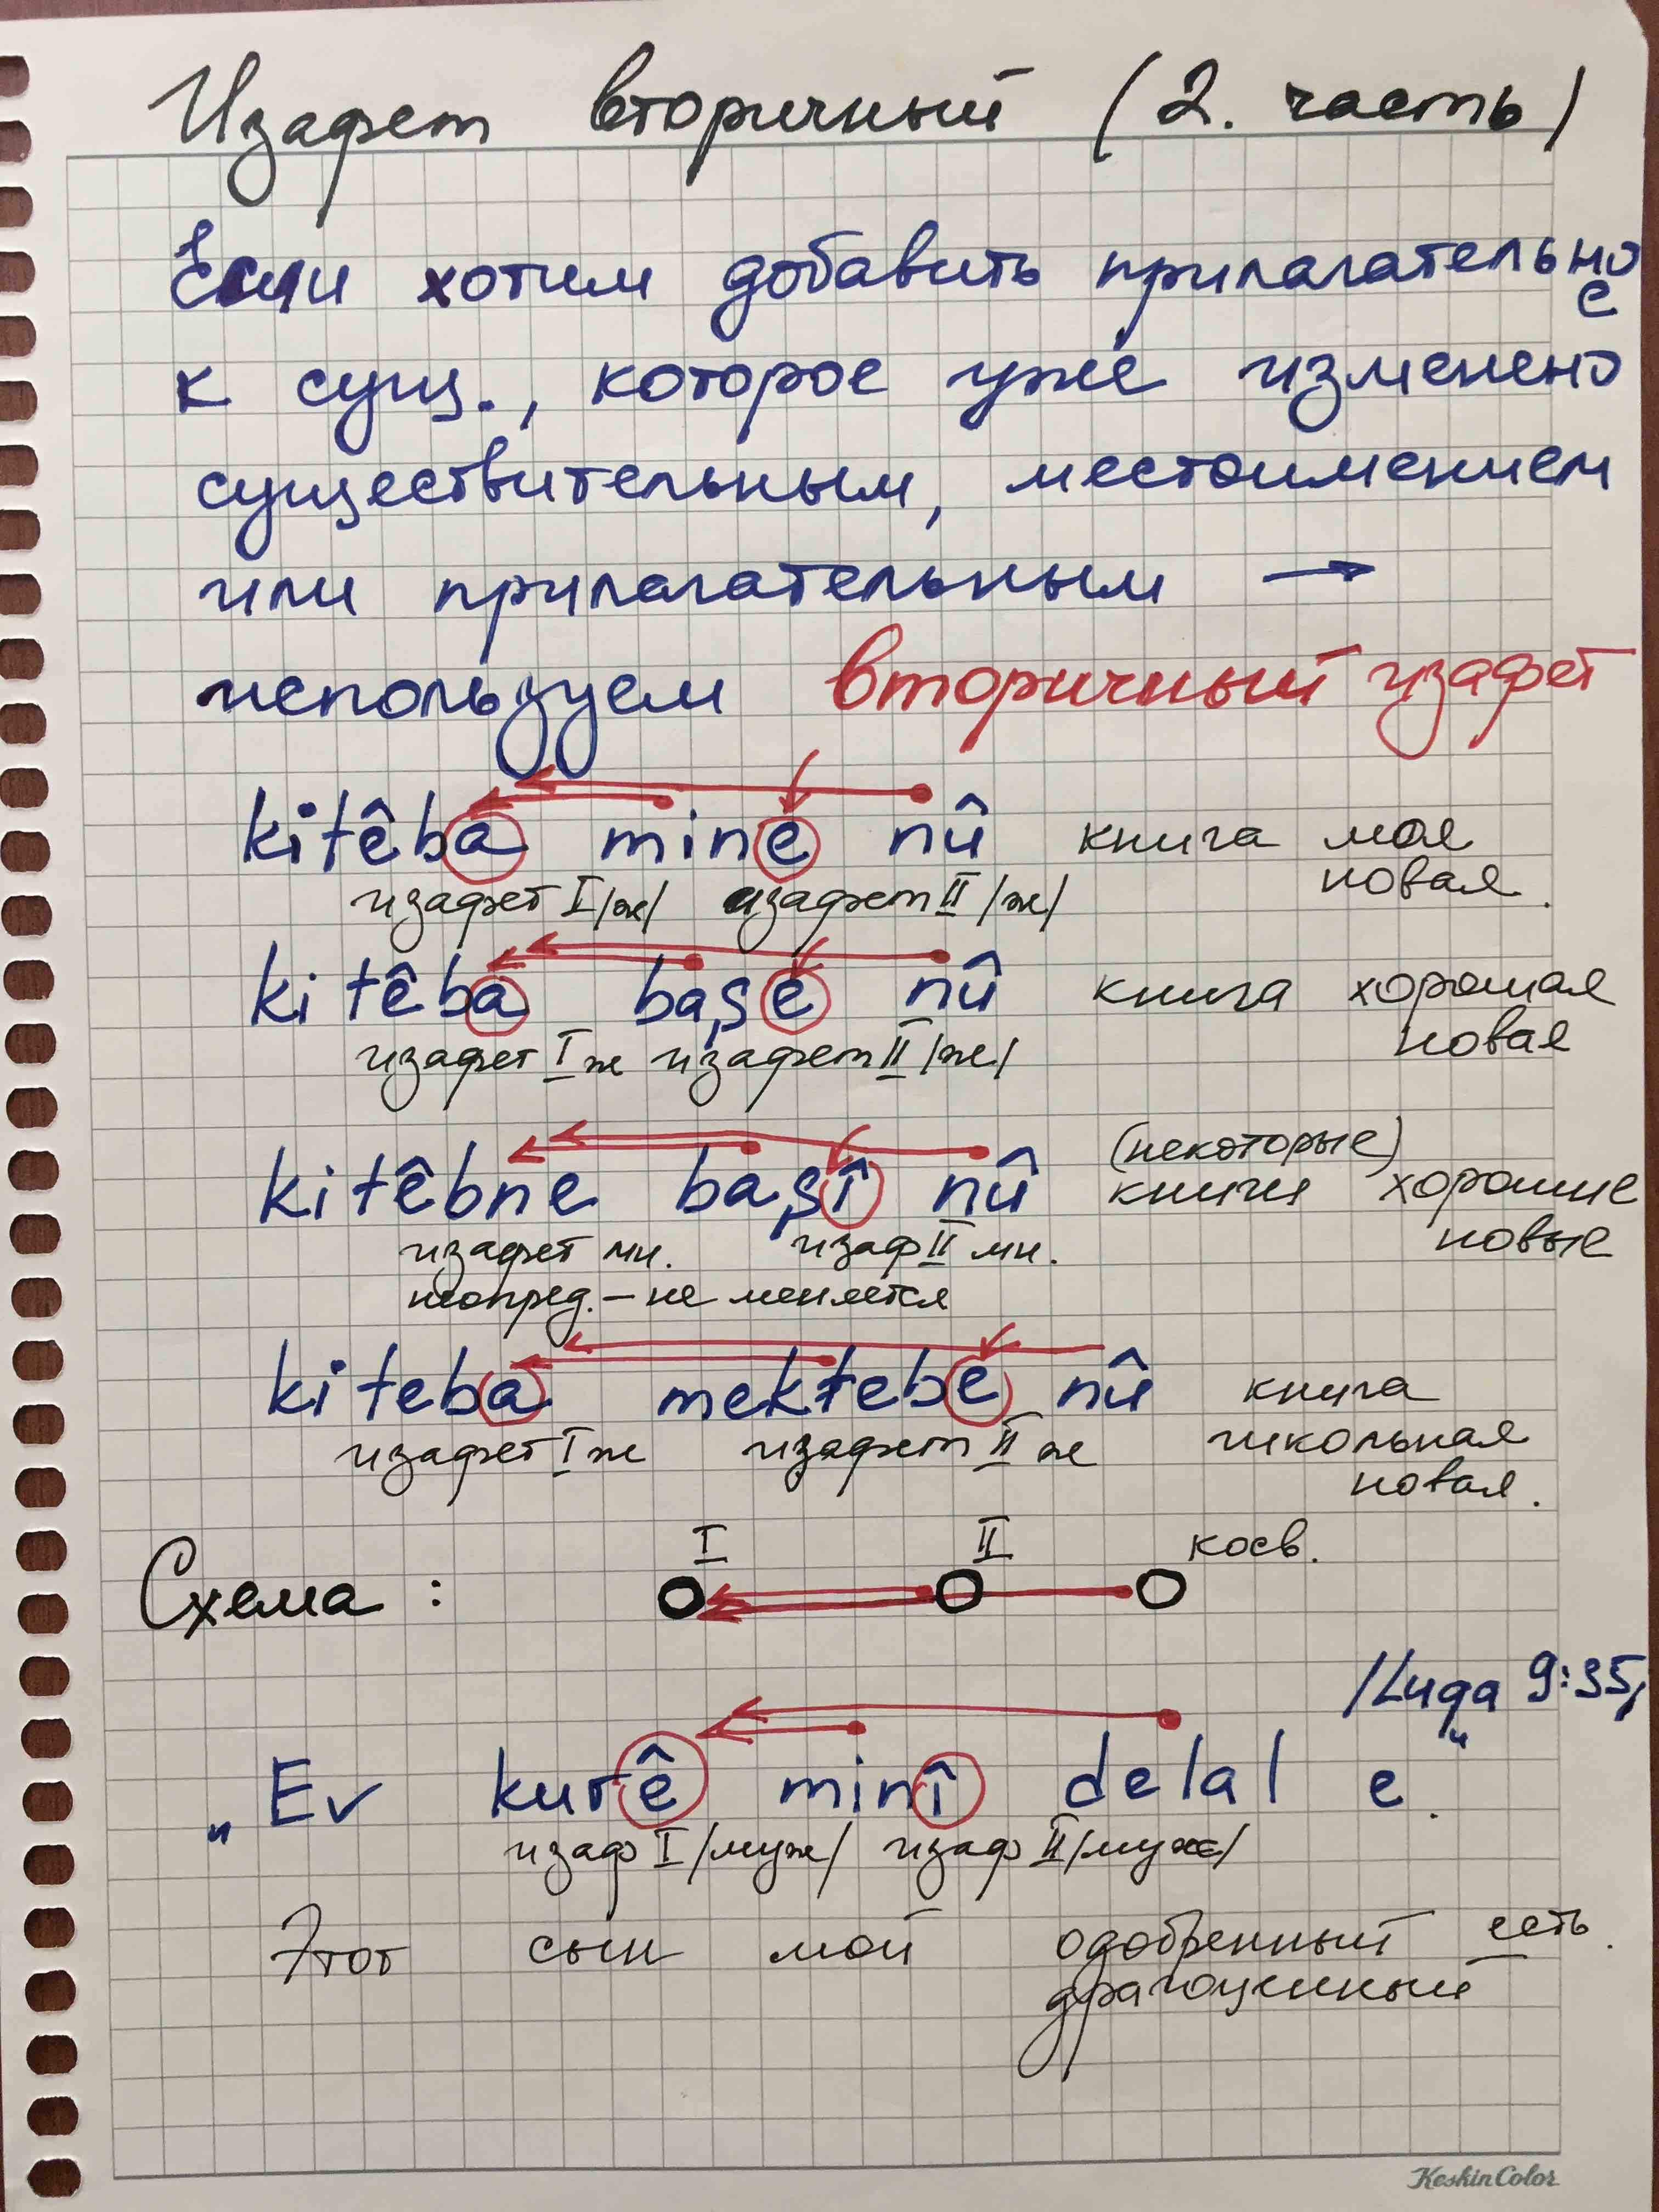 Изафет вторичный (2. часть)
Если хотим добавить прилагательное
к сущ., которое уже изменено
существительным, местоимением
или прилагательным →
используем вторичный изафет
kitêba mine nû книга моя
новая.
изафет I /ж/ изафет II /ж/
kitêba başe nû книга хорошая
новая
изафет I ж изафет II /ж/
(некоторые)
kitêbne başî nû книги хорошие
новые
изафет мн. изаф II мн.
неопред. – не меняется
kiteba mektebe nû книга
школьная
новая.
изафет I ж изафет II ж
I II косв.
Схема:
/Luqa 9:35/
„Ev kurê minî delal e."
изаф I /муж/ изаф II /муж/
Этот сын мой одобренный есть.
драгоценный
KeskinColor